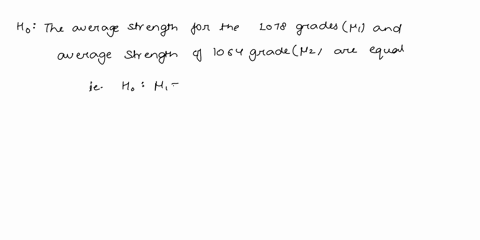 H₀: The average strength for the 1078 grades (μ₁) and
average strength of 1064 grade (μ₂) are equal
ie. H₀: μ₁ -